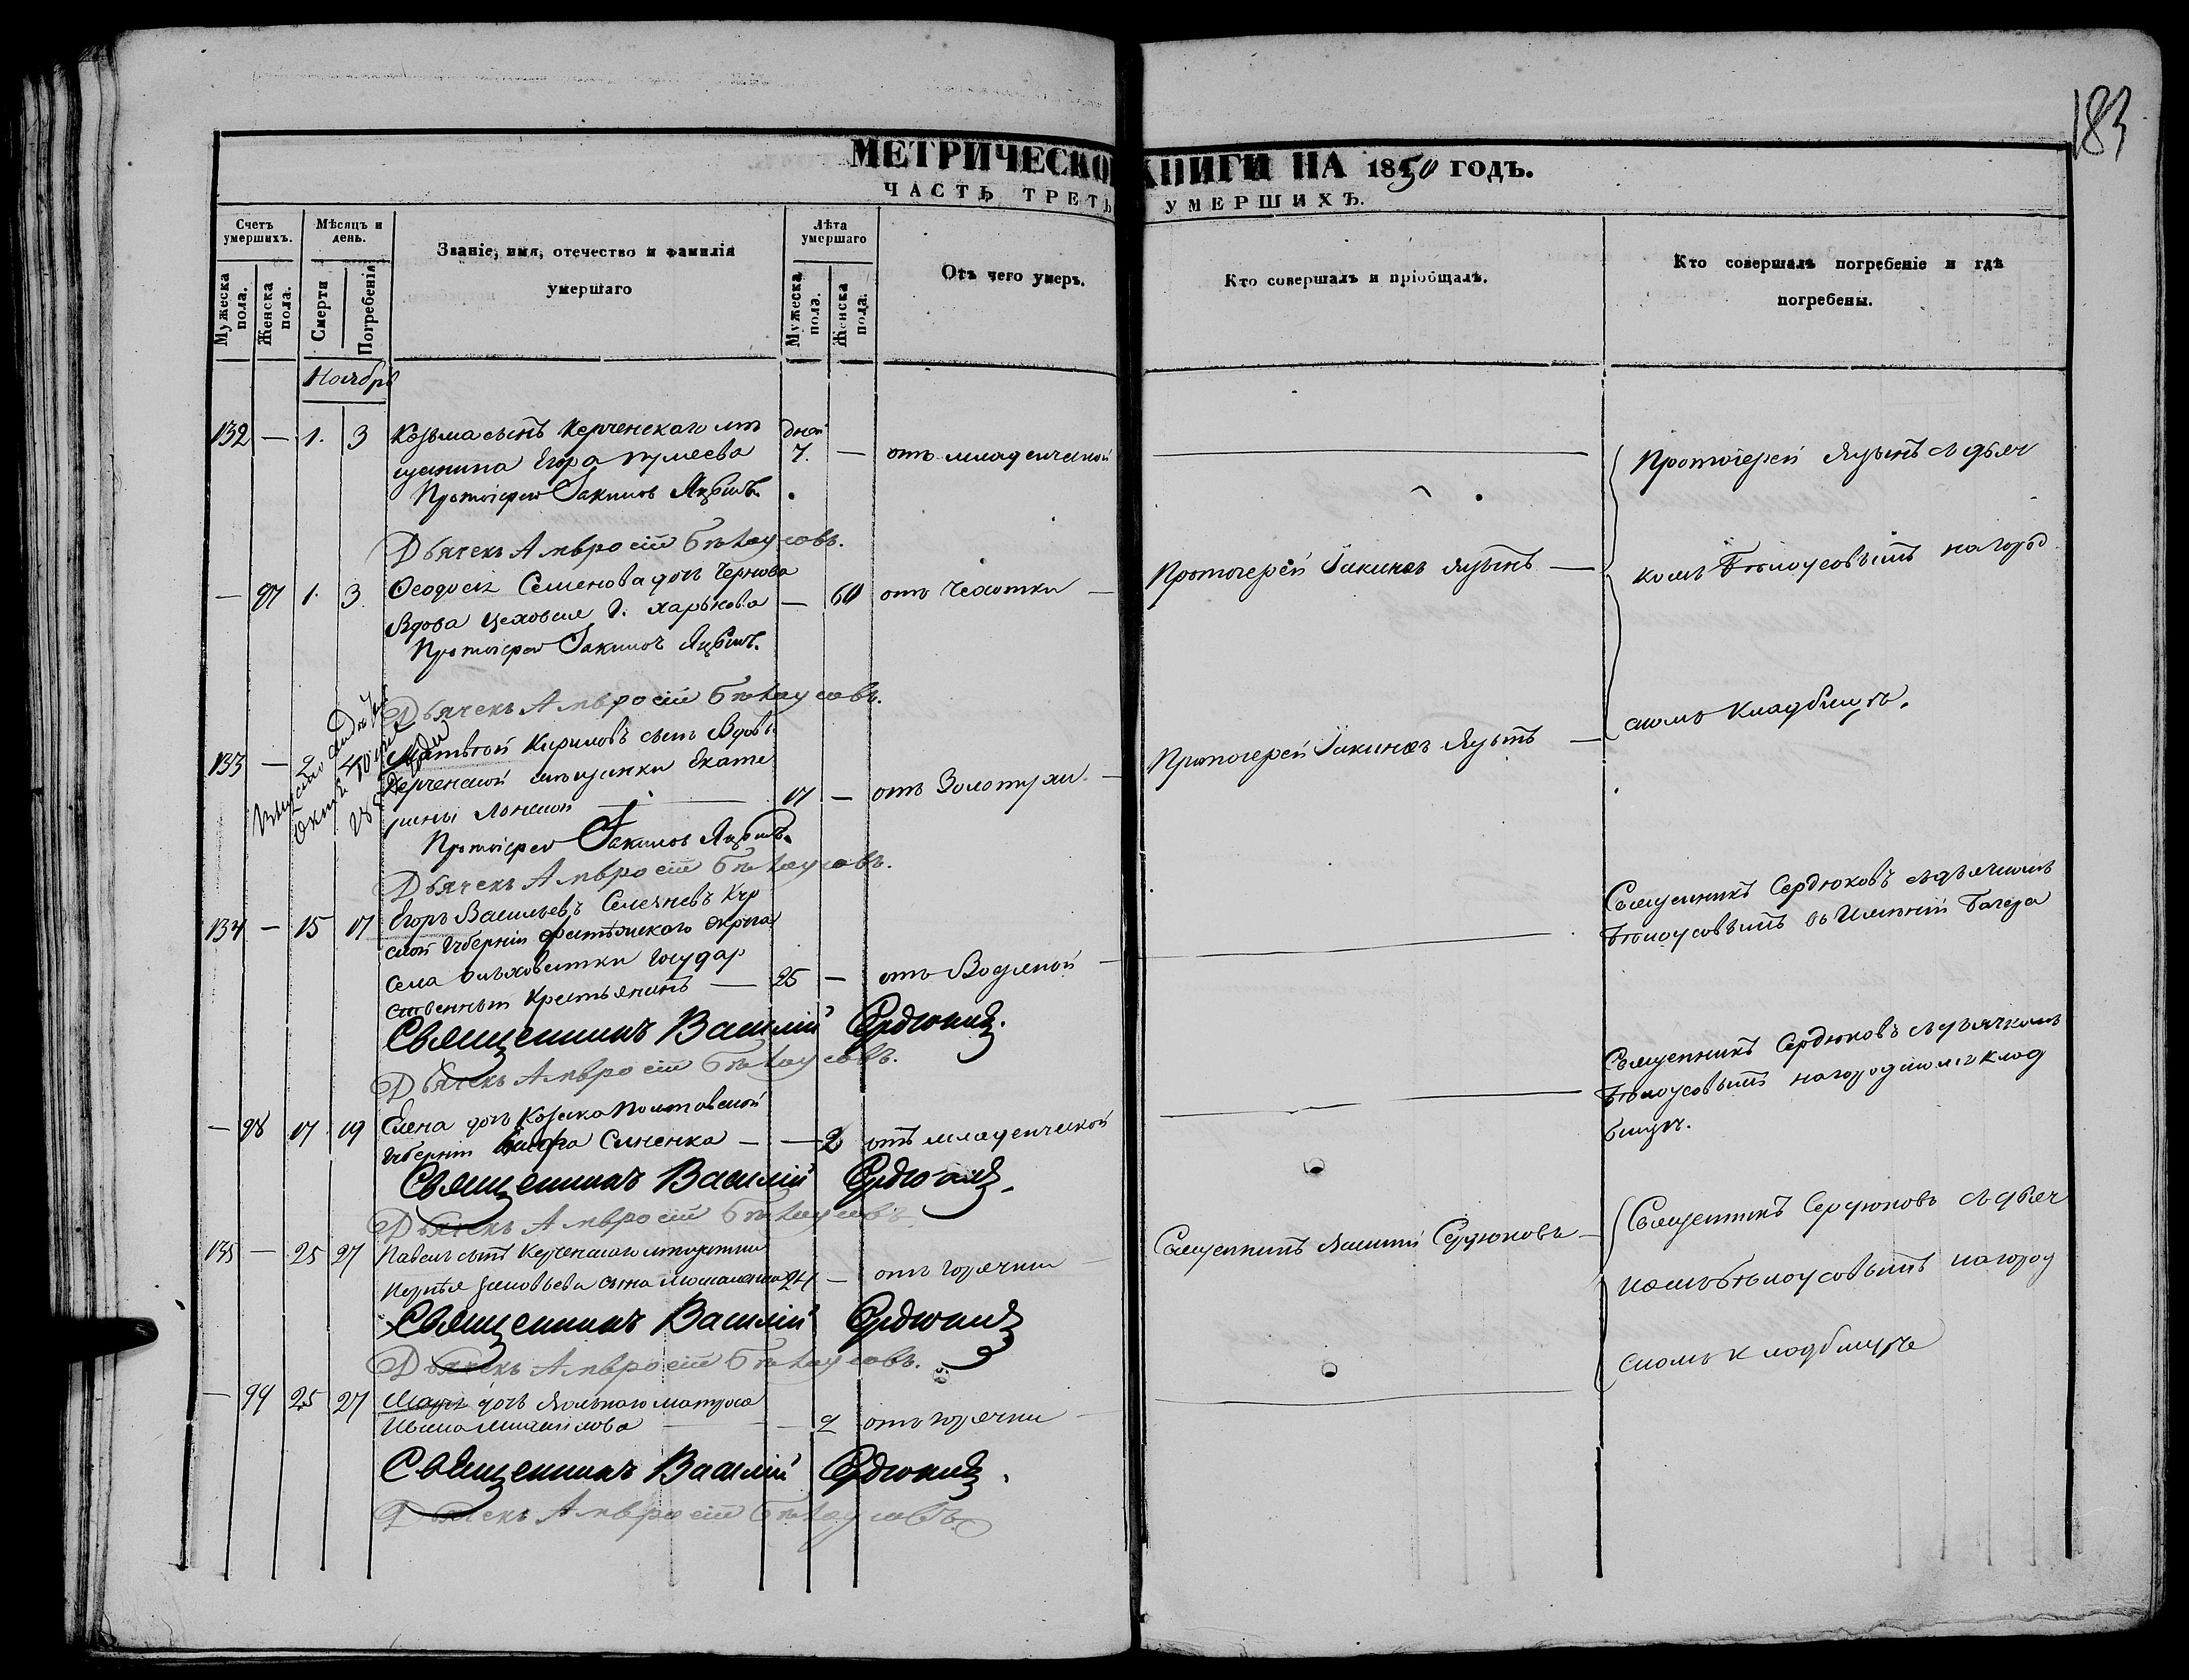 183
МЕТРИЧЕСКО КНИГИ НА 1850 ГОДЪ.
ЧАСТЬ ТРЕТЬ УМЕРШИХЪ.
Счетъ умершихъ.
Мужеска пола.
Женска пола.
Мѣсяцъ и день.
Смерти
Погребенія
Званіе, имя, отечество и фамилія
умершаго
Лѣта умершаго
Мужеска пола.
Женска пола.
Отъ чего умеръ.
Кто совершалъ и пріобщалъ.
Кто совершалъ погребеніе и гдѣ
погребены.
Ноябрь
132 — 1. 3 Козьма сынъ Керченскаго мѣ дней
щанина Егора 7. — отъ младенческой
Протоіерей Іакинѳъ
Протоіерей съ дьяч
Дьячекъ Амвросій Бѣлоусовъ.
— 97 1. 3. Ѳеодосія Семенова дочь Чернова
Вдова г. Харькова — 60 отъ Чахотки —
Протоіерей Іакинѳъ
комъ Бѣлоусовымъ на город
Протоіерей Іакинѳъ
Дьячекъ Амвросій Бѣлоусовъ.
скомъ кладбищѣ.
133 — 2 Кириловъ сынъ Вдовы
Керченской мѣщанки Екате
рины 17 — отъ Золотухи —
Протоіерей Іакинѳъ
Протоіерей Іакинѳъ
Дьячекъ Амвросій Бѣлоусовъ.
134 — 15 17 Егоръ Васильевъ Кур
ской Губерніи округа
села Государ
ственный Крестьянинъ — 25 — отъ Водяной —
Священникъ Сердюковъ съ дьячкомъ
Бѣлоусовымъ въ Имѣніи
Священникъ Василій Сердюковъ.
Дьячекъ Амвросій Бѣлоусовъ.
— 98 17 19 Елена дочь Козака Полтавской
Губерніи — — 2 отъ младенческой
Священникъ Сердюковъ съ дьячкомъ
Бѣлоусовымъ на городскомъ клад
бищѣ.
Священникъ Василій Сердюковъ.
Дьячекъ Амвросій Бѣлоусовъ.
135 — 25 27 Павелъ сынъ Керченскаго мѣщанина
сына 24 — отъ горячки —
Священникъ Василій Сердюковъ —
Священникъ Сердюковъ съ дьяч
комъ Бѣлоусовымъ на город
скомъ кладбищѣ
Священникъ Василій Сердюковъ
Дьячекъ Амвросій Бѣлоусовъ.
— 99 25 27 дочь матроса
Ивана — 2 отъ горячки —
Священникъ Василій Сердюковъ.
Дьячекъ Амвросій Бѣлоусовъ.